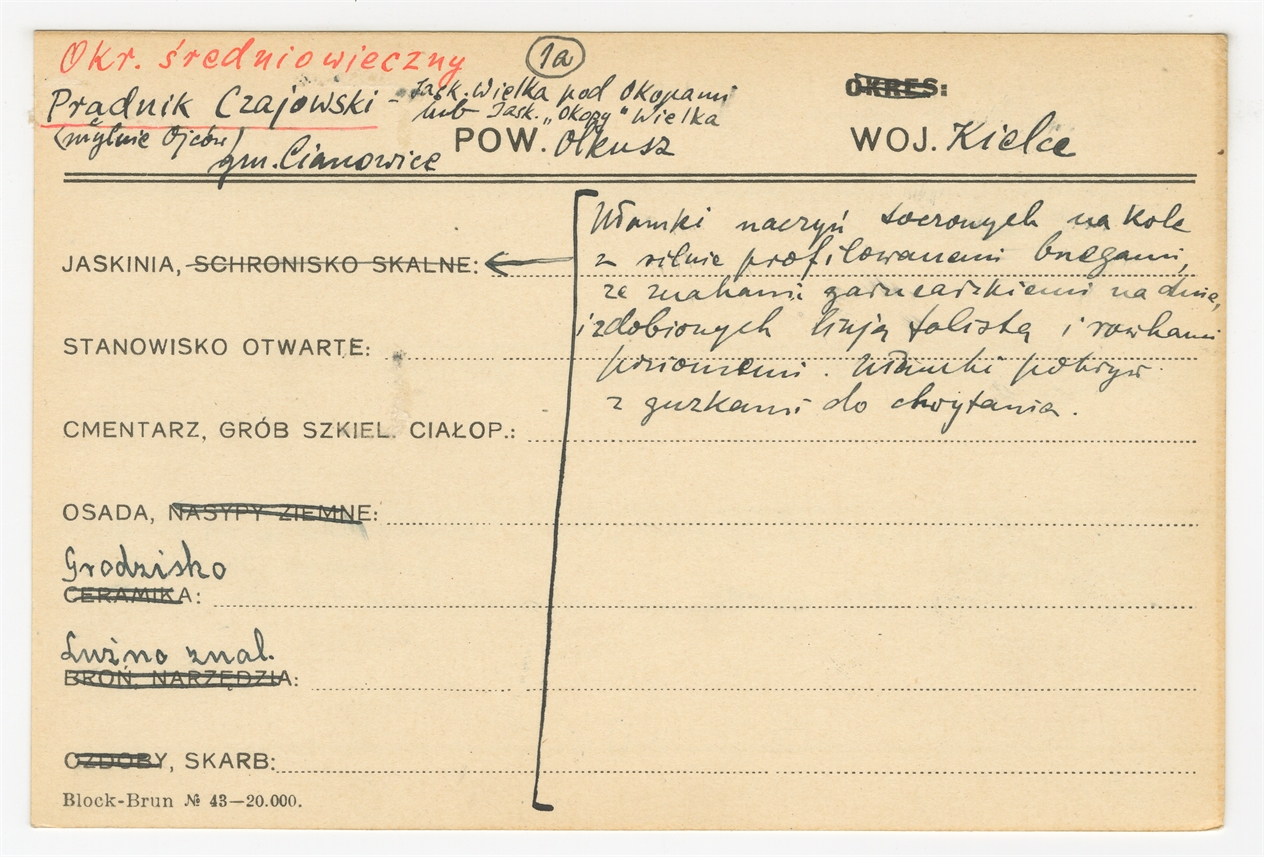 Okr. średniowieczny
1a
Prądnik Czajowski - Jask. Wielka pod Okopami
lub Jask. „Okopy” Wielka
OKRES:
(mylnie Ojców)
gm. Cianowice
POW. Olkusz
WOJ. Kielce
Ułamki naczyń toczonych na kole
z silnie profilowanemi brzegami,
ze znakami garncarskiemi na dnie,
izdobionych linją falistą i rowkami
poziomemi. Ułamki pokryw
z guzkami do chwytania.
JASKINIA, SCHRONISKO SKALNE:
STANOWISKO OTWARTE:
CMENTARZ, GRÓB SZKIEL. CIAŁOP.:
OSADA, NASYPY ZIEMNE:
Grodzisko
CERAMIKA:
Luźno znal.
BROŃ, NARZĘDZIA:
OZDOBY, SKARB:
Block-Brun № 43—20.000.